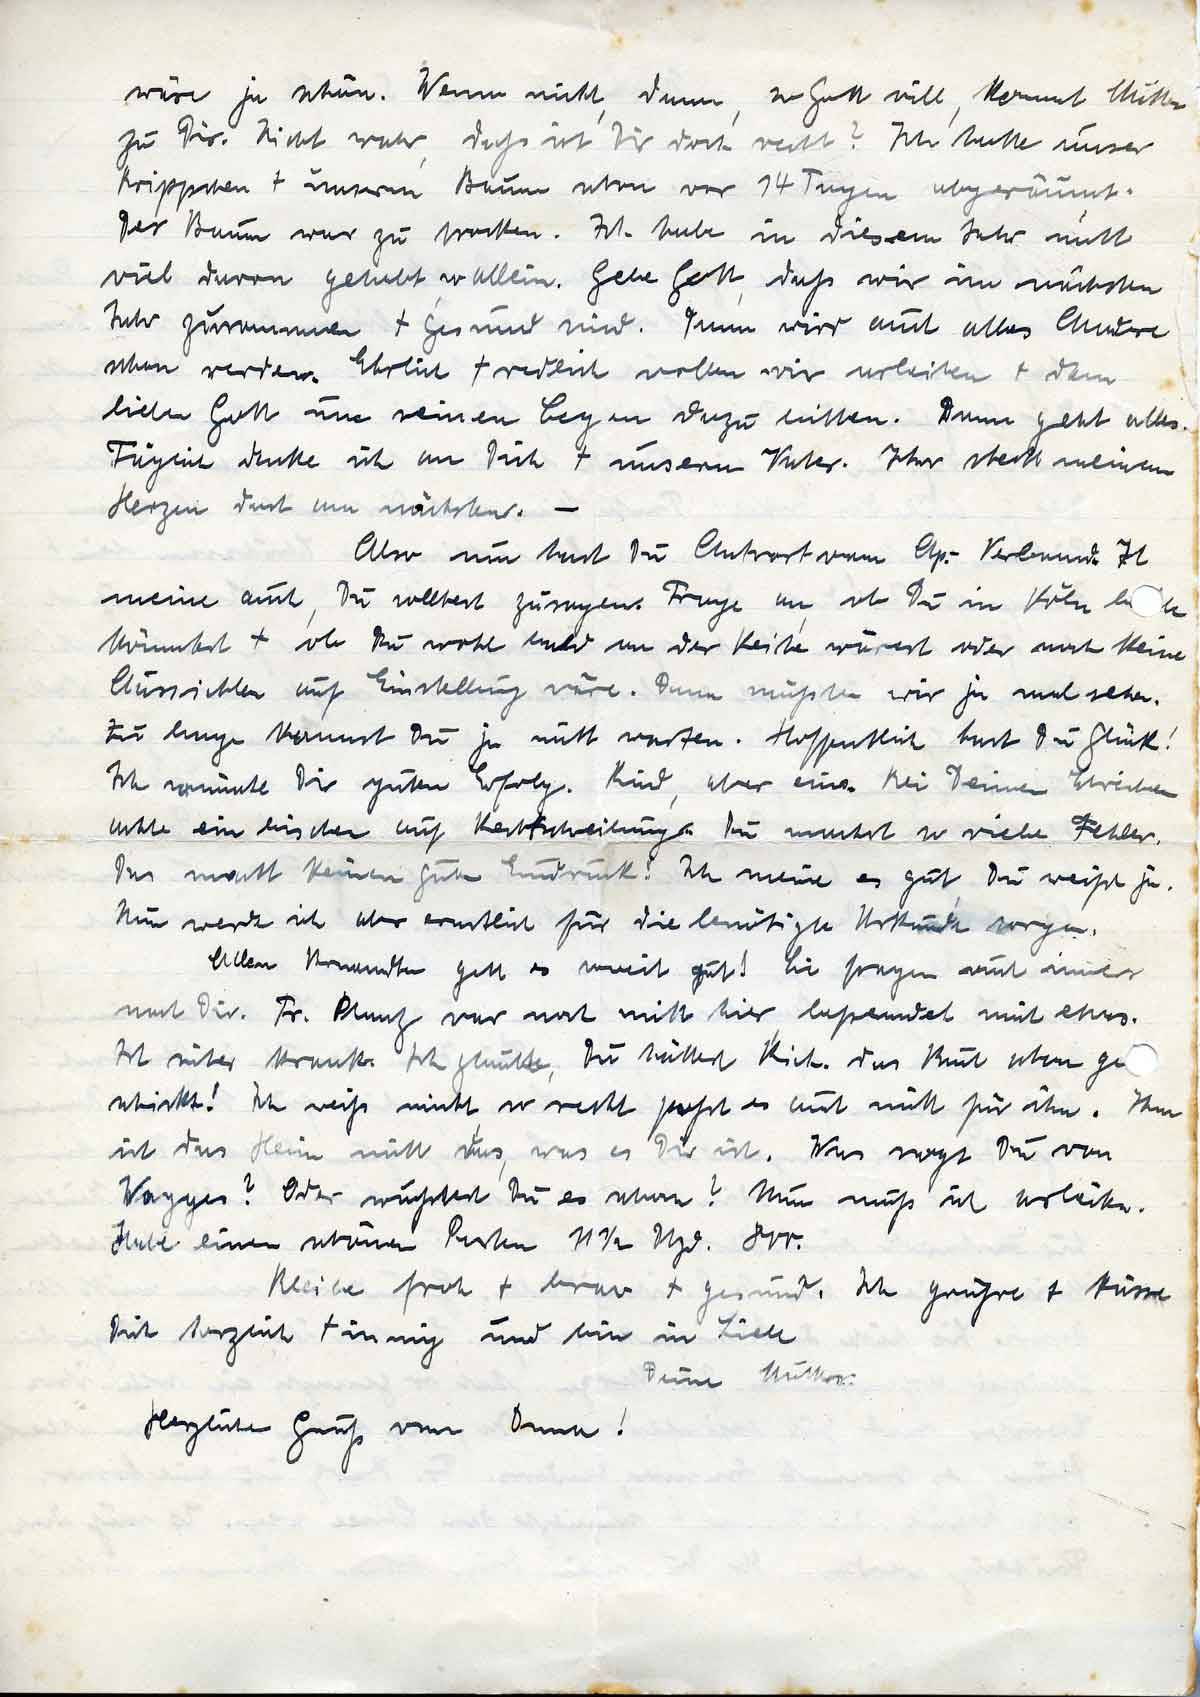 wäre ja schön. Wenn nicht, dann, so Gott will, kommt Mutter
zu Dir. Nicht wahr, daß ist Dir doch recht? Ich habe unser
Krippchen + unseren Baum schon vor 14 Tagen abgeräumt.
Der Baum war zu trocken. Ich habe in diesem Jahr nicht
viel davon gehabt, so allein. Gebe Gott, daß wir im nächsten
Jahr zusammen + gesund sind. Dann wird auch alles Andere
schon werden. Ehrlich + redlich wollen wir arbeiten + dem
lieben Gott um seinen Segen dazu bitten. Dann geht alles.
Täglich denke ich an Dich + unsern Vater. Ihr steht meinem
Herzen doch am nächsten. —
Also nun hast Du Antwort vom Ap. Verband. Ich
meine auch, Du solltest zusagen. Frage an, ob Du in Köln
könntest + ob Du wohl bald an der Reihe wärest oder noch keine
Aussichten auf Einstellung wäre. Dann müßten wir ja mal sehen.
Zu lange kannst Du ja nicht warten. Hoffentlich hast Du Glück!
Ich wünsche Dir guten Erfolg. Kind, aber eins. Bei Deinen Schreiben
achte ein bischen auf Rechtschreibung. Du machst so viele Fehler.
Das macht keinen guten Eindruck! Ich meine es gut, Du weißt ja.
Nun werde ich aber ernstlich für die benötigte Urkunde sorgen.
Allen Verwandten geht es soweit gut! Sie fragen auch immer
nach Dir. Fr. Plautz war noch nicht hier, befreundet mit etwas.
Ist sicher krank. Ich glaubte, Du hättest Rich. das Buch schon ge
schickt! Ich weiß nicht, so recht paßt es auch nicht für ihn. Ihm
ist das Heim nicht das, was es Dir ist. Was sagt Du von
Wagges? Oder wußtest Du es schon? Nun muß ich arbeiten.
Habe einen schönen Posten 11½ Dzd.
Bleibe froh + brav + gesund. Ich grüße + küsse
Dich herzlich + innig und bin in Liebe
Deine Mutter.
Herzliche Grüß von Änne!